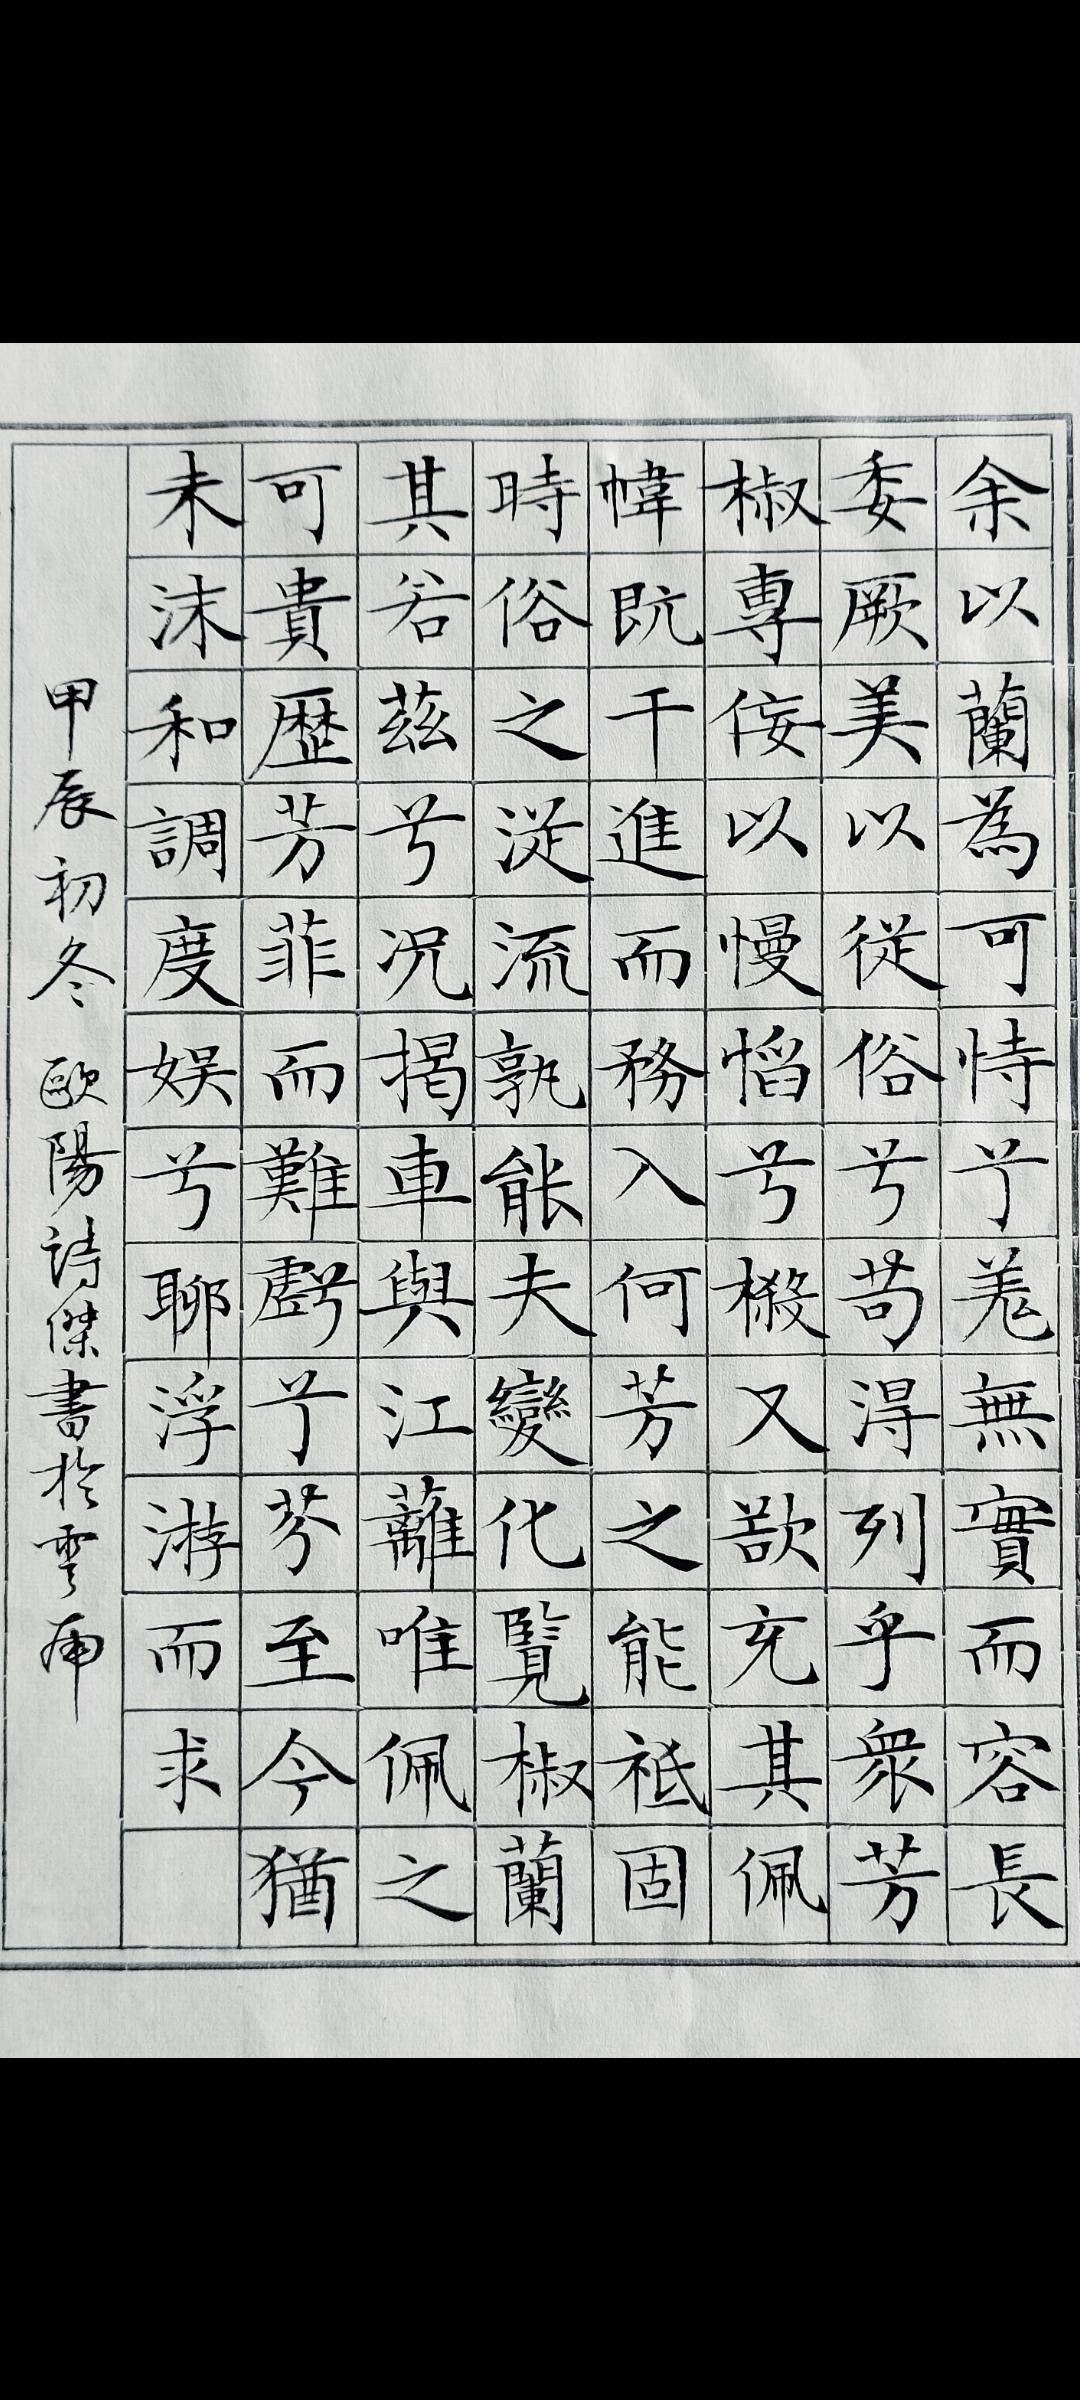 余以蘭為可恃兮羌無實而容長
委厥美以從俗兮苟得列乎衆芳
椒專佞以慢慆兮樧又欲充其佩
幃既干進而務入何芳之能祗固
時俗之從流孰能夫變化覽椒蘭
其若茲兮况揭車與江蘺唯佩之
可貴歷芳菲而難虧兮芬至今猶
未沬和調度娛兮聊浮游而求
甲辰初冬 歐陽詩傑書於雲